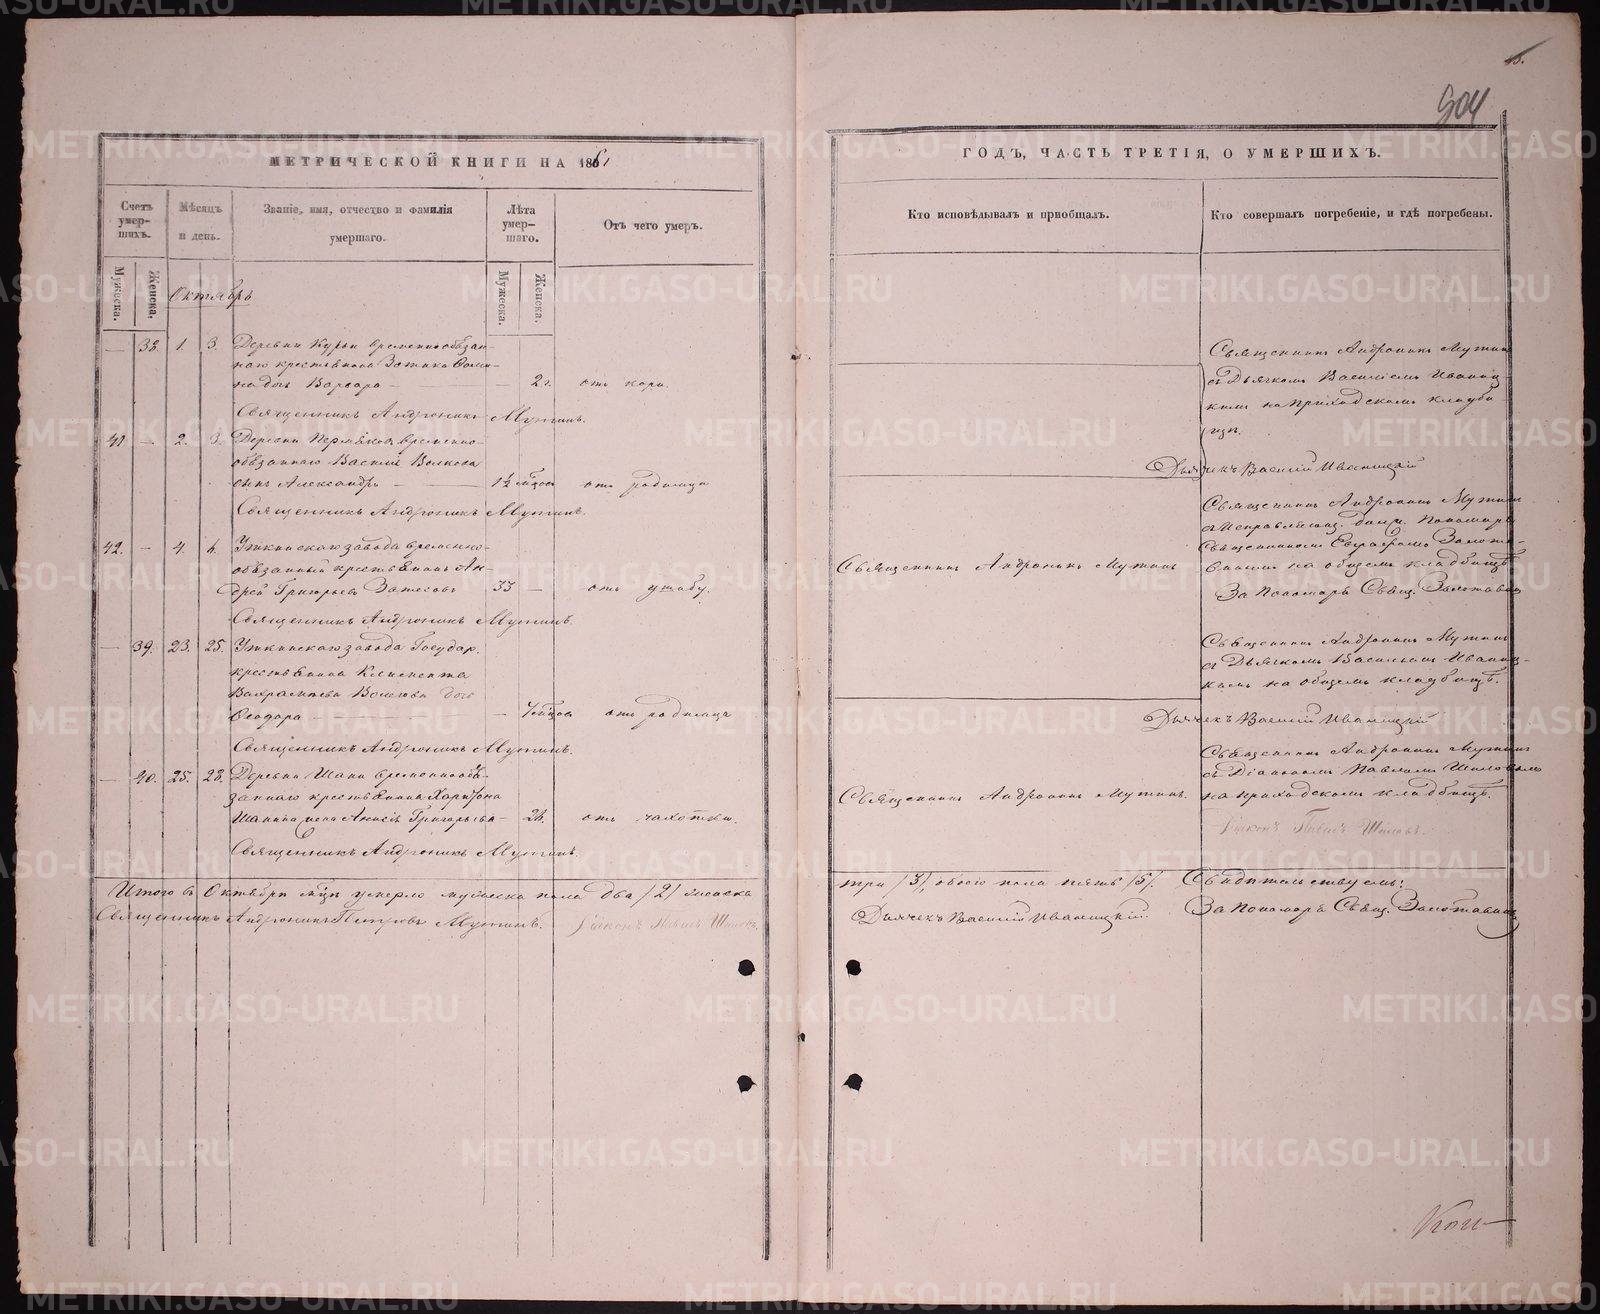 904
МЕТРИЧЕСКОЙ КНИГИ НА 1861
ГОДЪ, ЧАСТЬ ТРЕТІЯ, О УМЕРШИХЪ.
Счетъ умер-
шихъ.
Мужеска.
Женска.
Мѣсяцъ
и день.
Званіе, имя, отчество и фамилія
умершаго.
Лѣта
умер-
шаго.
Мужеска.
Женска.
Отъ чего умеръ.
Кто исповѣдывалъ и пріобщалъ.
Кто совершалъ погребеніе, и гдѣ погребены.
Октябрь
— 38. 1. 3. Деревни Курьи временнообязан-
наго крестьянина Зотика
дочь Варвара — — 2 г. отъ кори.
Священникъ Андроникъ Мутинъ.
Священникъ Андроникъ Мутинъ
съ Дьячкомъ Василіемъ Иваниц-
кимъ на приходскомъ кладби-
щѣ.
Дьячекъ Василій Иваницкій
41 — 2. 3. Деревни временно-
обязаннаго Василія Волкова
сынъ Александръ — 1½ мѣсяц отъ родимца
Священникъ Андроникъ Мутинъ.
Священникъ Андроникъ Мутинъ
съ исправляющ. долж. Пономаря
Священникомъ Евграфомъ Золота-
винымъ на общемъ кладбищѣ
За Пономаря Свящ. Золотавинъ
42. — 4. 6. Уткинскаго завода временно-
обязанный крестьянинъ Ан-
дрей Григорьевъ 33 — отъ ушибу.
Священникъ Андроникъ Мутинъ.
Священникъ Андроникъ Мутинъ
— 39. 23. 25. Уткинскаго завода Государ.
крестьянина Климента
Вахрамѣева дочь
Ѳеодора — — мѣсяц отъ родимца
Священникъ Андроникъ Мутинъ.
Священникъ Андроникъ Мутинъ
съ Дьячкомъ Васильемъ Иваниц-
кимъ на общемъ кладбищѣ.
Дьячекъ Василій Иваницкій
— 40. 25. 28. Деревни временнообя-
заннаго крестьянина Харитона
Шанина жена Анисія Григорьева — 26. отъ чахотки.
Священникъ Андроникъ Мутинъ.
Священникъ Андроникъ Мутинъ.
Священникъ Андроникъ Мутинъ
съ Діакономъ Павломъ Шиловымъ
на приходскомъ кладбищѣ.
Діаконъ Павелъ Шиловъ.
Итого въ Октябрѣ м-цѣ умерло мужеска пола два /2/ женска
три /3/, обоего пола пять /5/. Свидѣтельствуемъ:
Священникъ Андроникъ Петровъ Мутинъ. Діаконъ Павелъ Шиловъ.
Дьячекъ Василій Иваницкій. За Пономаря Свящ. Золотавинъ
METRIKI.GASO-URAL.RU